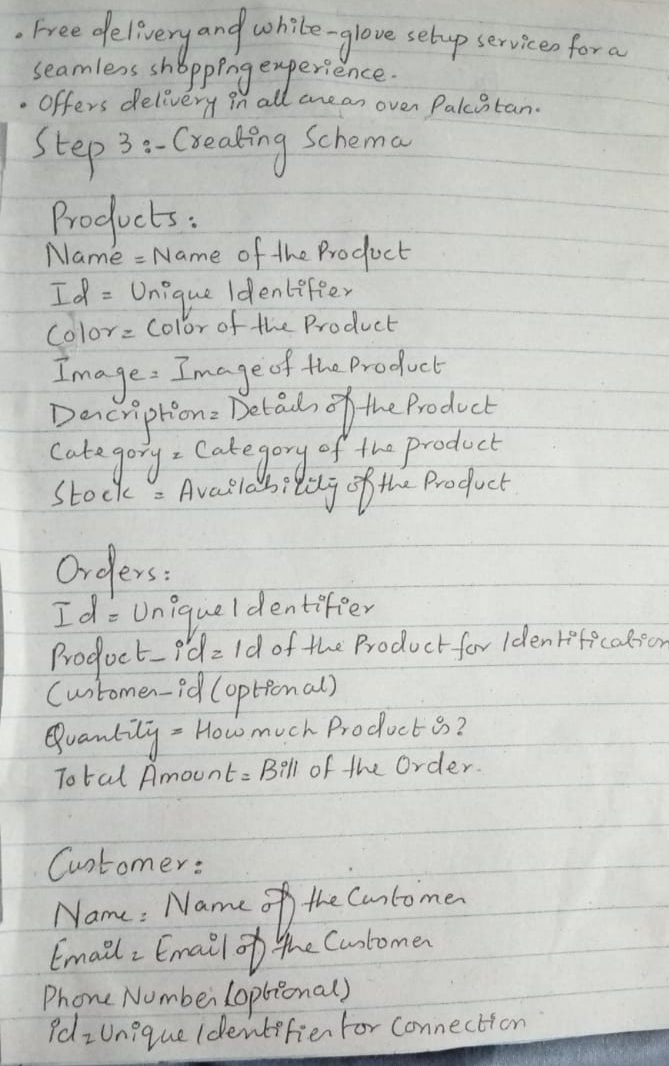 • Free delivery and white-glove setup services for a
seamless shopping experience.
• Offers delivery in all areas over Pakistan.
Step 3 :- Creating Schema
Products :
Name = Name of the Product
Id = Unique Identifier
Color = Color of the Product
Image = Image of the Product
Description = Details of the Product
Category = Category of the product
Stock = Availability of the Product.
Orders :
Id = Unique Identifier
Product_id = Id of the Product for Identification
Customer-id (optional)
Quantity = How much Product is?
Total Amount = Bill of the Order.
Customer :
Name = Name of the Customer
Email = Email of the Customer
Phone Number (optional)
id = Unique Identifier for Connection